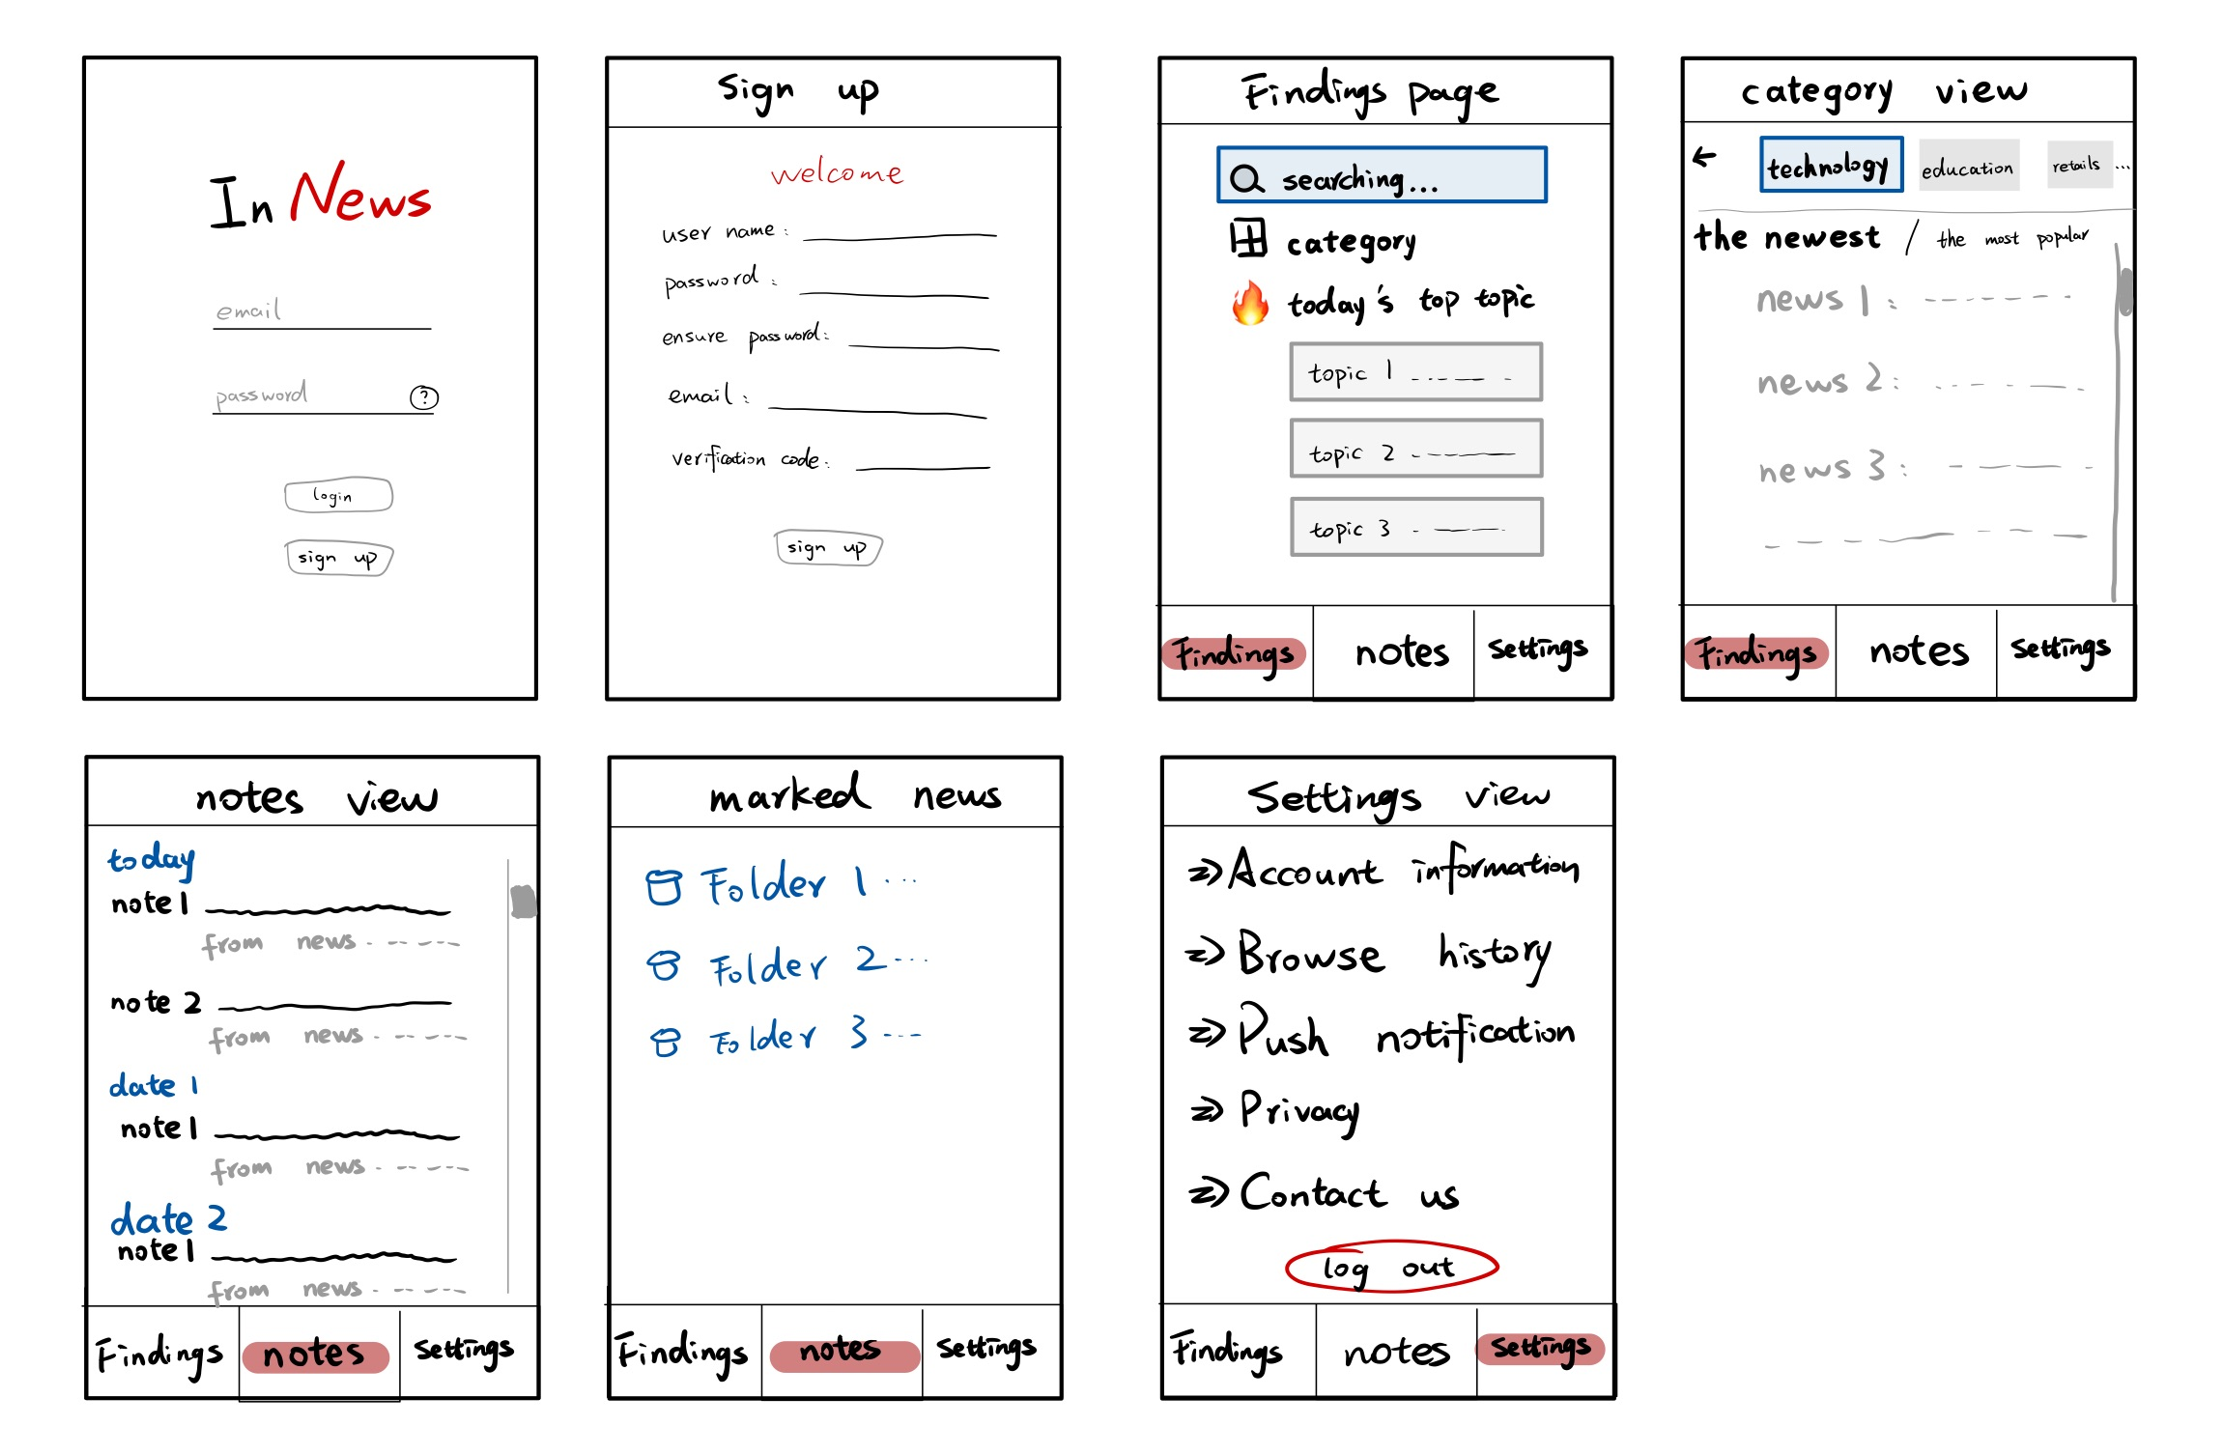 In News
email
password ?
login
sign up
Sign up
welcome
user name :
password :
ensure password:
email :
verification code:
sign up
Findings page
searching...
category
today's top topic
topic 1
topic 2
topic 3
Findings notes Settings
category view
← technology education retails ...
the newest / the most popular
news 1 :
news 2 :
news 3 :
Findings notes Settings
notes view
today
note 1
from news
note 2
from news
date 1
note 1
from news
date 2
note 1
from news
Findings notes Settings
marked news
Folder 1 ...
Folder 2 ...
Folder 3 ...
Findings notes Settings
Settings view
Account information
Browse history
Push notification
Privacy
Contact us
log out
Findings notes Settings